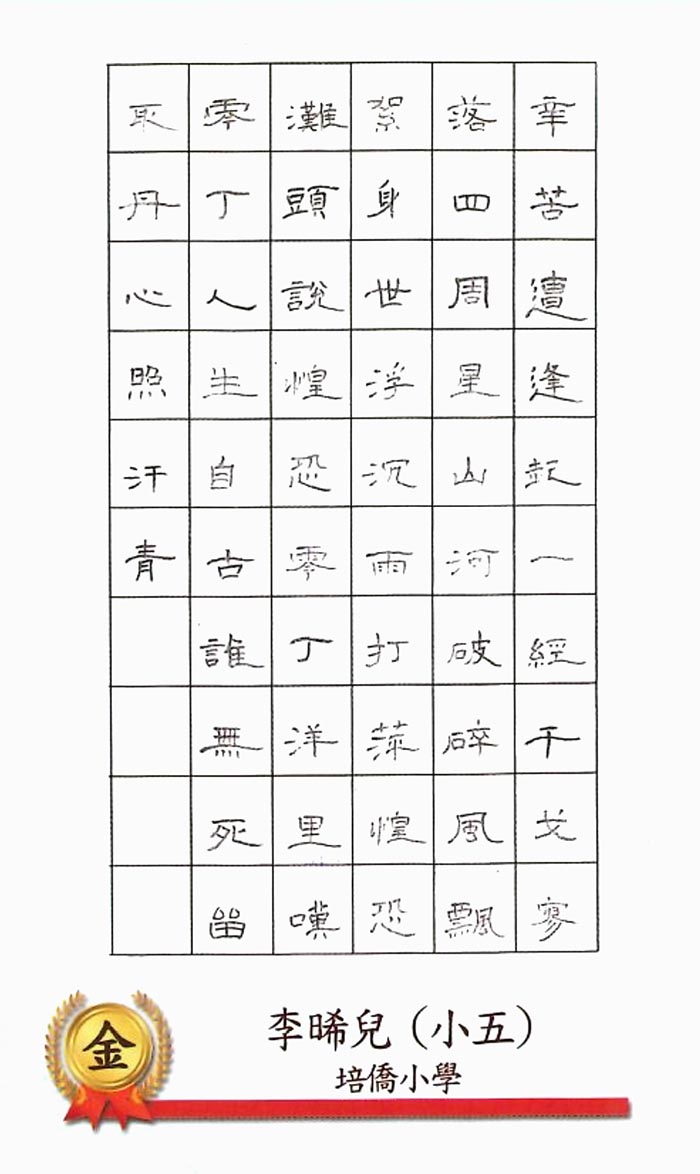 辛苦遭逢起一經干戈寥
落四周星山河破碎風飄
絮身世浮沉雨打萍惶恐
灘頭說惶恐零丁洋里嘆
零丁人生自古誰無死留
取丹心照汗青
金
李晞兒（小五）
培僑小學